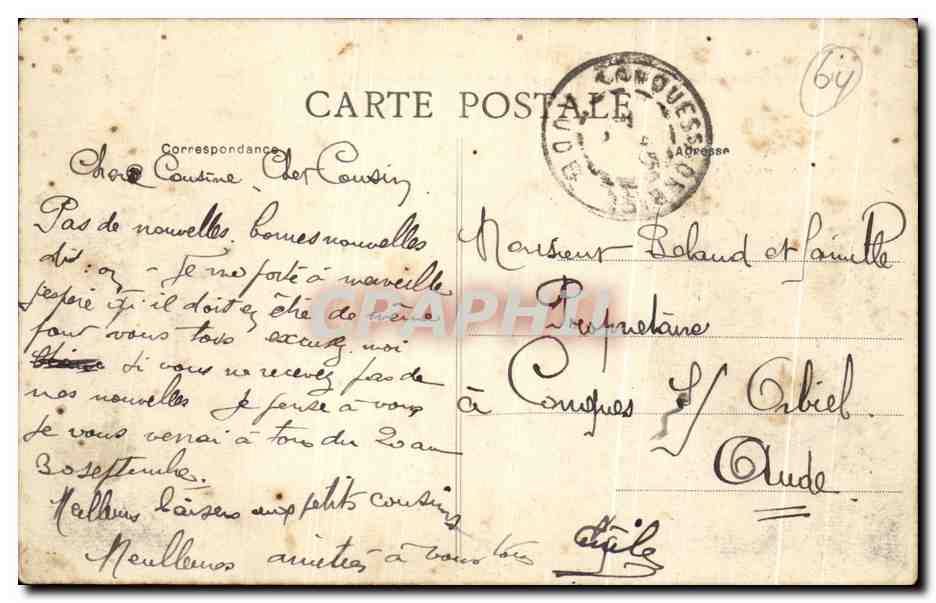 64
CARTE POSTALE
CONQUES S ORBIEL
AUDE
Correspondance
Adresse
Chere Cousine Cher Cousin
Pas de nouvelles, bonnes nouvelles
dit: on - Je me porte à merveille
j'espère qu'il doit en être de même
pour vous tous excusez moi
si vous ne recevez pas de
nos nouvelles Je pense à vous
Je vous verrai à tous du 20 au
30 septembre.
Meilleurs baisers aux petits cousins
Meilleures amitiés à vous tous
Monsieur Beland et famille
Propriétaire
à Conques s/ Orbiel.
Aude
CPAPHIL